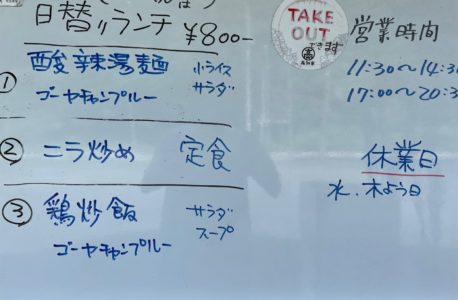 日替りランチ ¥800-
① 酸辣湯麺 小ライス
ゴーヤチャンプルー サラダ
② ニラ炒め 定食
③ 鶏炒飯 サラダ
スープ
ゴーヤチャンプルー
TAKE
OUT
できます
営業時間
11:30～14:30
17:00～20:30
休業日
水、木よう日